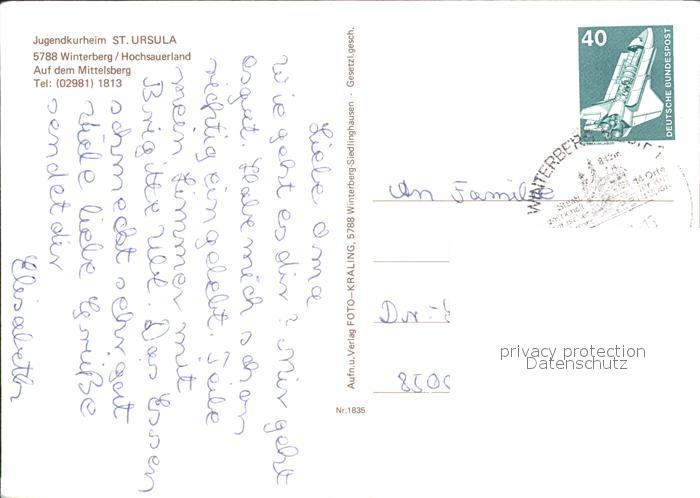 Jugendkurheim ST. URSULA
5788 Winterberg / Hochsauerland
Auf dem Mittelsberg
Tel: (02981) 1813
Liebe Oma
wie geht es dir? Mir geht
es gut. Habe mich schon
richtig eingelebt. Teile
mein Zimmer mit
Brigitte Ull. Das Essen
schmeckt sehr gut
Viele liebe Grüße
sendet dir
Elisabeth
Aufn.u.Verlag FOTO-KRALING, 5788 Winterberg-Siedlinghausen · Gesetzl.gesch.
Nr.1835
40
DEUTSCHE BUNDESPOST
WINTERBERG
14 Orte
An Familie
Dr.
850
privacy protection
Datenschutz